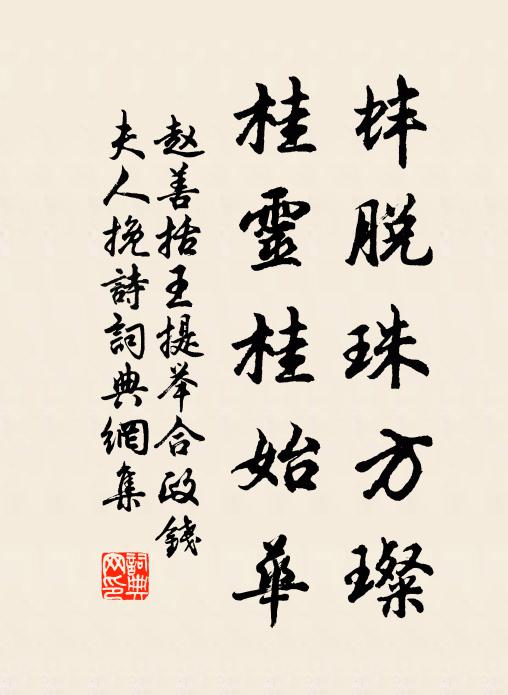 蚌脱珠方璨
桂靈桂始華
赵善括王提举合政錢
夫人挽詩詞典網集
詞典网印